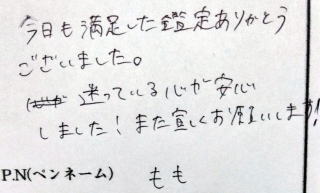 今日も満足した鑑定ありがとう
ございました。
迷っている心が安心
しました！また宜しくお願いします!
P.N(ペンネーム) もも